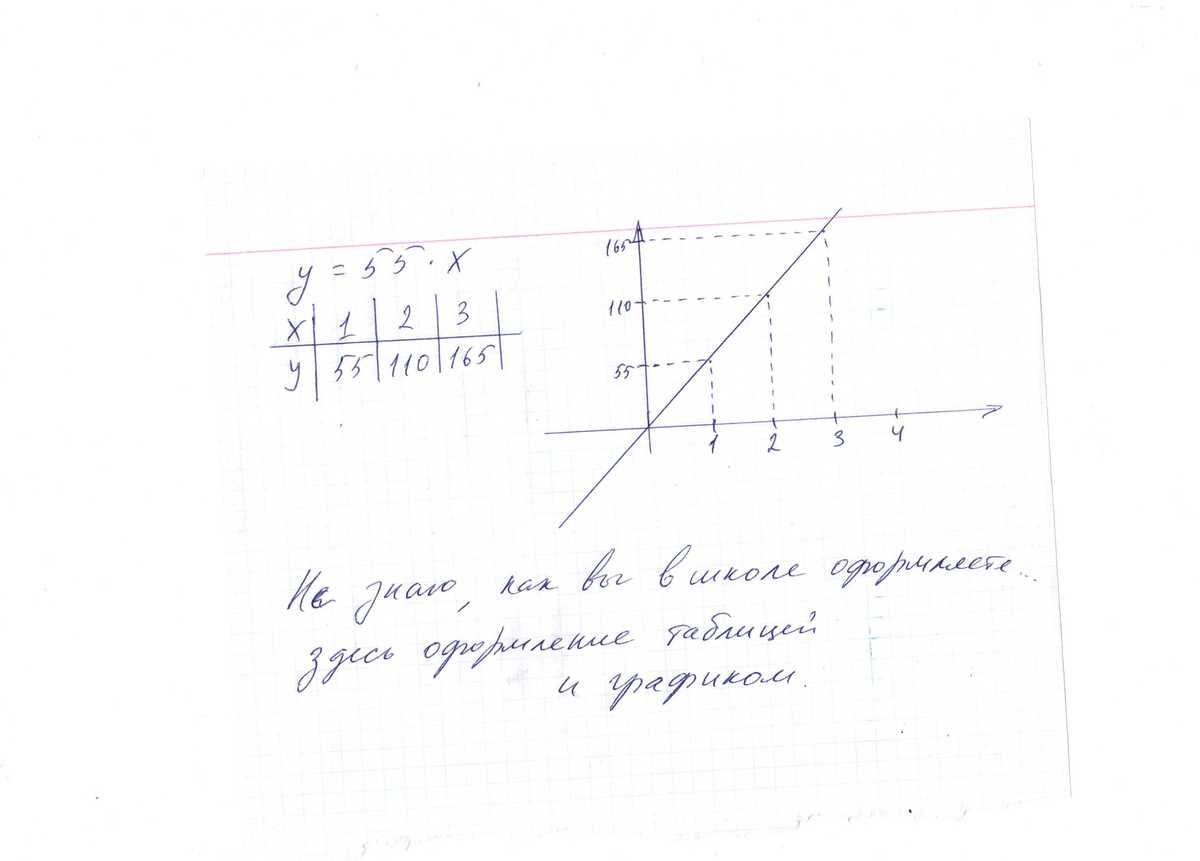 y = 55 · x
x | 1 | 2 | 3 |
y | 55 | 110 | 165 |
165
110
55
1 2 3 4
Не знаю, как вы в школе оформляете...
здесь оформление таблицей
и графиком.